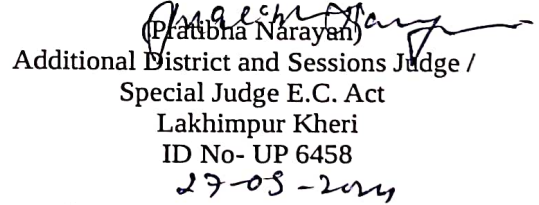 (Pratibha Narayan)
Additional District and Sessions Judge /
Special Judge E.C. Act
Lakhimpur Kheri
ID No- UP 6458